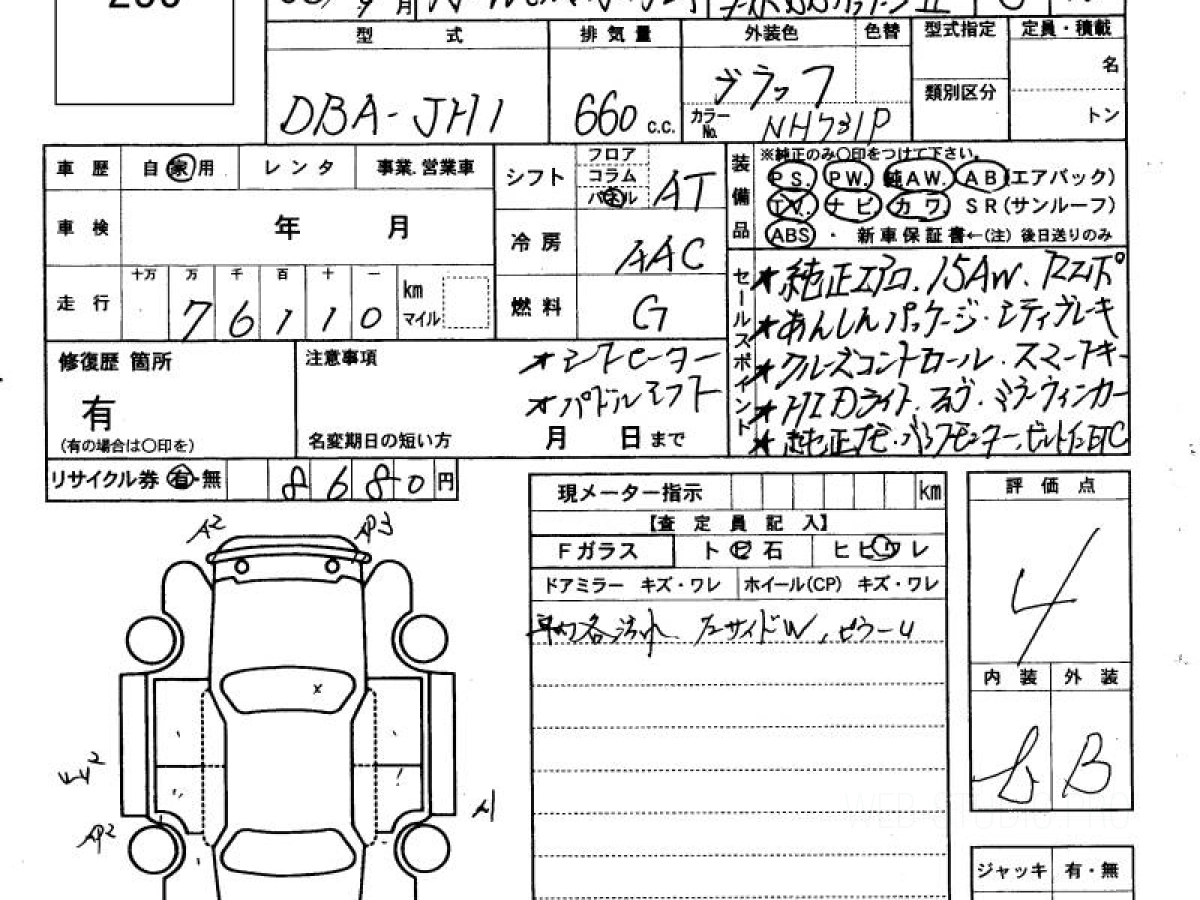 型 式 排 気 量 外装色 色替 型式指定 定員・積載
DBA-JH1 660 c.c. ブラック 名
カラーNo. NH731P 類別区分 トン
車 歴 自家用 レンタ 事業.営業車
車 検 年 月
走 行 十万 万 千 百 十 一
7 6 1 1 0 km マイル
シフト フロア コラム パネル AT
冷 房 AAC
燃 料 G
装備品 ※純正のみ〇印をつけて下さい。
PS. PW. 純AW. AB(エアバック)
TV. ナビ カワ. SR(サンルーフ)
ABS ・ 新車保証書←(注) 後日送りのみ
セールスポイント
★純正エアロ.15AW.
★あんしんパッケージ・シティブレーキ
★クルーズコントロール.スマートキー
★HIDライト. ミラーウィンカー
★純正ナビ.バックモニター.ビルトインETC
修復歴 箇所
有
(有の場合は〇印を)
注意事項
★シートヒーター
★パドルシフト
名変期日の短い方 月 日 まで
リサイクル券 有・無 8680 円
現メーター指示 km
【査 定 員 記 入】
Fガラス トビ石 ヒビワレ
ドアミラー キズ・ワレ ホイール(CP) キズ・ワレ
左サイドW、ピラーU
評 価 点
4
内 装 外 装
B
ジャッキ 有・無
A2 AP3
AP2 A1